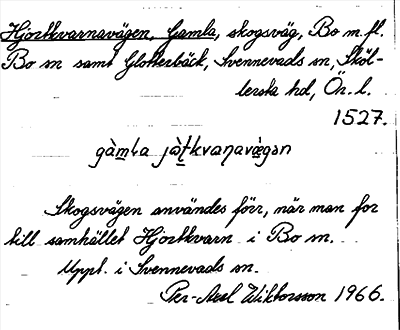 Hjortkvarnavägen, Gamla, skogsväg, Bo m. fl.
Bo sn samt Glotterbäck, Svennevads sn, Sköl-
lerska hd, Ör. l.
1527.
gàmla jàt̠kvaṇavä̀gən
Skogsvägen användes förr, när man for
till samhället Hjortkvarn i Bo sn.
Uppt. i Svennevads sn.
Per-Axel Wiktorsson 1966.